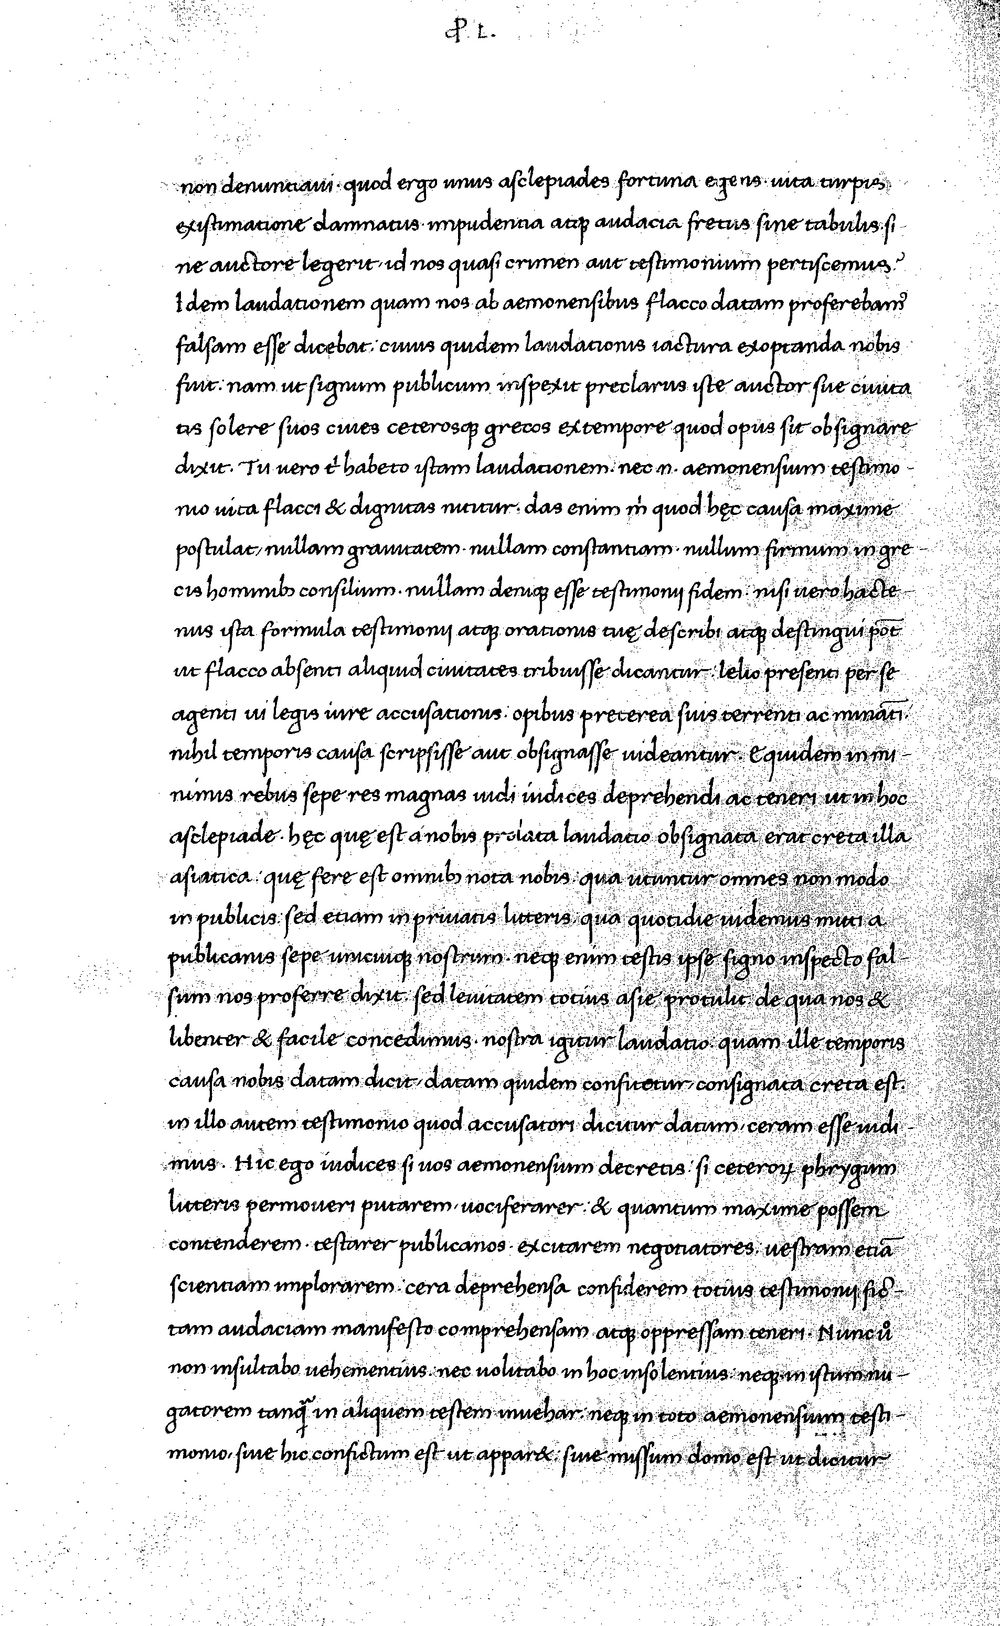 P. L.
non denuntiaui · quod ergo unus asclepiades fortuna egens · uita turpis
existimatione damnatus · impudentia atq; audacia fretus sine tabulis · si-
ne auctore legerit · id nos quasi crimen aut testimonium pertiscemus?
Idem laudationem quam nos ab aemonensibus flacco datam proferebam9
falsam esse dicebat · cuius quidem laudationis iactura exoptanda nobis
fuit · nam ut signum publicum inspexit preclarus iste auctor sue ciuita
tis solere suos ciues ceterosq; grecos ex tempore quod opus sit obsignare
dixit. Tu uero t̄ habeto istam laudationem · nec n. aemonensium testimo-
nio uita flacci & dignitas nititur · das enim m̄ quod hęc causa maxime
postulat, nullam grauitatem · nullam constantiam · nullum firmum in gre-
cis hominib; consilium · nullam deniq; esse testimonij fidem · nisi uero hacte-
nus ista formula testimonij atq; orationis tuę describi atq; destingui pōt
ut flacco absenti aliquid ciuitates tribuisse dicantur · lelio presenti per se
agenti ui legis iure accusationis · opibus preterea suis terrenti ac mināti ·
nihil temporis causa scripsisse aut obsignasse uideantur. Equidem in mi-
nimis rebus sepe res magnas uidi iudices deprehendi ac teneri ut in hoc
asclepiade · hęc quę est a nobis prolata laudatio obsignata erat creta illa
asiatica · quę fere est omnib; nota nobis · qua utuntur omnes non modo
in publicis sed etiam in priuatis litteris · qua quotidie uidemus mitti a
publicanis sepe unicuiq; nostrum · neq; enim testis ipse signo inspecto fal-
sum nos proferre dixit · sed leuitatem totius asie protulit de qua nos &
libenter & facile concedimus · nostra igitur laudatio · quam ille temporis
causa nobis datam dicit, datam quidem confitetur, consignata creta est.
in illo autem testimonio quod accusatori dicitur datum, ceram esse uidi-
mus. Hic ego iudices si uos aemonensium decretis · si ceteroꝝ phrygum
litteris permoueri putarem · uociferarer · & quantum maxime possem
contenderem · testarer publicanos · excitarem negotiatores · uestram etiā
scientiam implorarem · cera deprehensa considerem totius testimonij fic-
tam audaciam manifesto comprehensam atq; oppressam teneri · Nunc uo
non insultabo uehementius · nec uolitabo in hoc insolentius · neq; in istum nu-
gatorem tanq̄ in aliquem testem inuehar · neq; in toto aemonensium testi-
monio, siue hic confictum est ut appar& · siue missum domo est ut dicitur